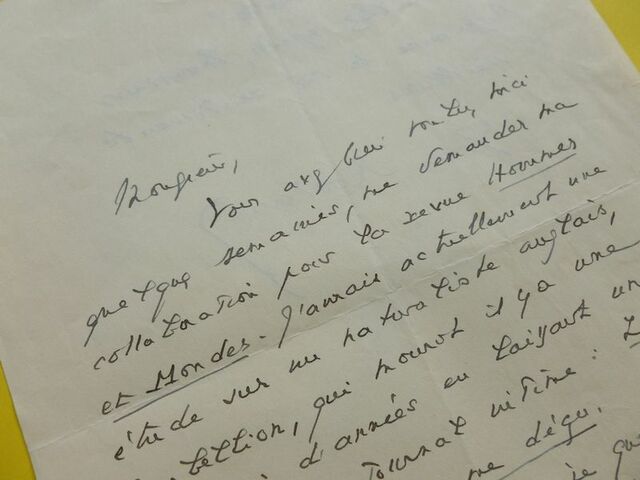 Monsieur,
Vous avez bien voulu, voici
quelque semaines, me demander ma
collaboration pour la revue Hommes
et Mondes. J'aurais actuellement une
étude sur un naturaliste anglais,
qui mourut il y a une
d'années en laissant un
Journal intime : L
me déçu.
je que